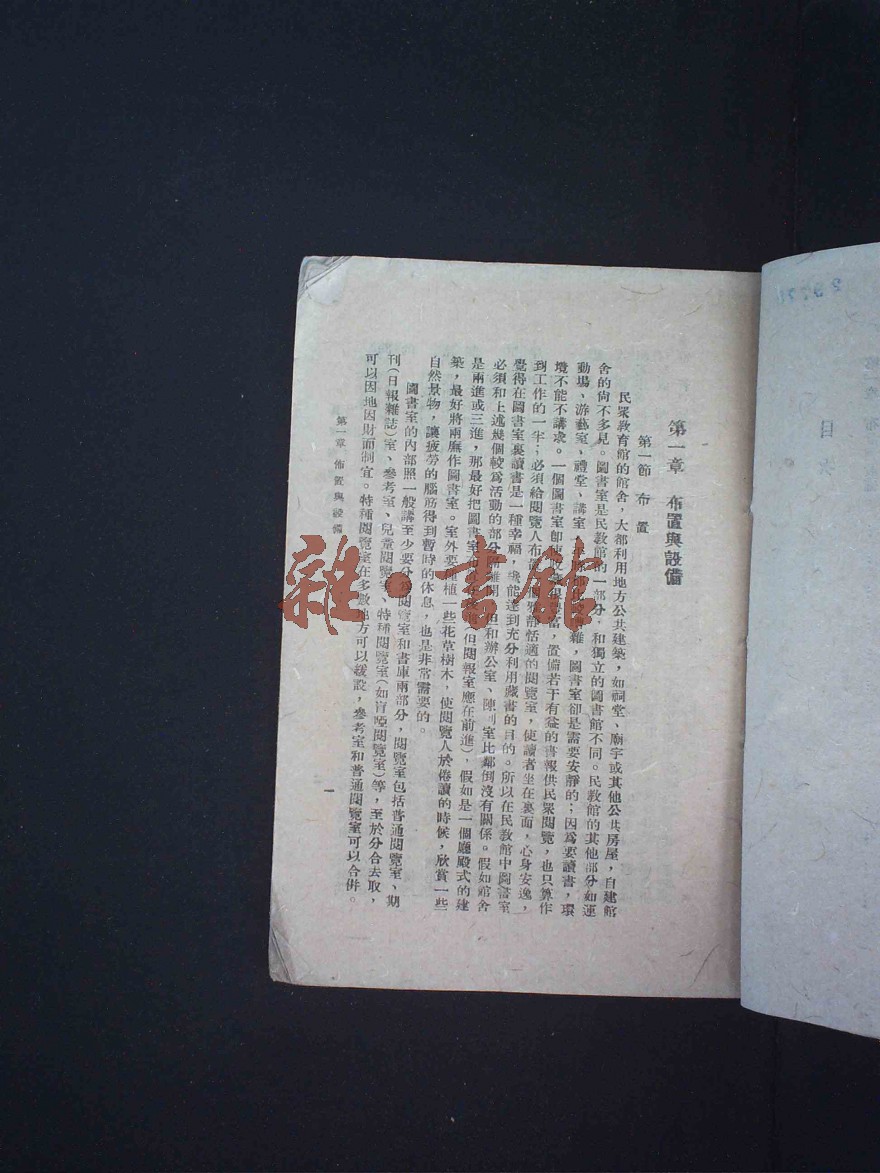 第一章 布置與設備
第一節 布置
民眾教育館的館舍，大都利用地方公共建築，如祠堂、廟宇或其他公共房屋，自建館
舍的尙不多見。圖書室是民教館的一部分，和獨立的圖書館不同。民教館的其他部分如運
動場、游藝室、禮堂、講室 雜，圖書室卻是需要安靜的；因爲要讀書，環
境不能不講求。一個圖書室卽使 富，置備若干有益的書報供民眾閱覽，也只算作
到工作的一半；必須給閱覽人布 靜恬適的閱覽室，使讀者坐在裏面，心身安逸，
覺得在圖書室裏讀書是一種幸福，纔能達到充分利用藏書的目的。所以在民教館中圖書室
必須和上述幾個較爲活動的部分隔離開，但和辦公室、陳列室比鄰倒沒有關係。假如館舍
是兩進或三進，那最好把圖書室 但閱報室應在前進），假如是一個廳殿式的建
築，最好將兩廡作圖書室。室外要種植一些花草樹木，使閱覽人於倦讀的時候，欣賞一些
自然景物，讓疲勞的腦筋得到暫時的休息，也是非常需要的。
圖書室的內部照一般講至少要分爲閱覽室和書庫兩部分，閱覽室包括普通閱覽室、期
刊（日報雜誌）室、參考室、兒童閱覽室、特種閱覽室（如盲啞閱覽室）等，至於分合去取，
可以因地因財而制宜。特種閱覽室在多數地方可以緩設，參考室和普通閱覽室可以合併。
第一章 佈置與設備
一
目次
雜·書館